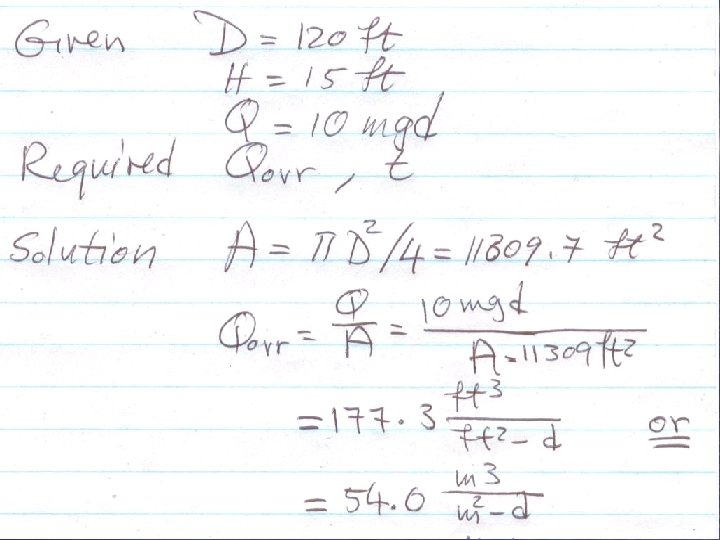 Given D = 120 ft
H = 15 ft
Q = 10 mgd
Required Qovr, t
Solution A = πD²/4 = 11309.7 ft²
Qovr = Q/A = 10 mgd / A=11309 ft²
= 177.3 ft³/ft²-d or
= 54.0 m3/m²-d